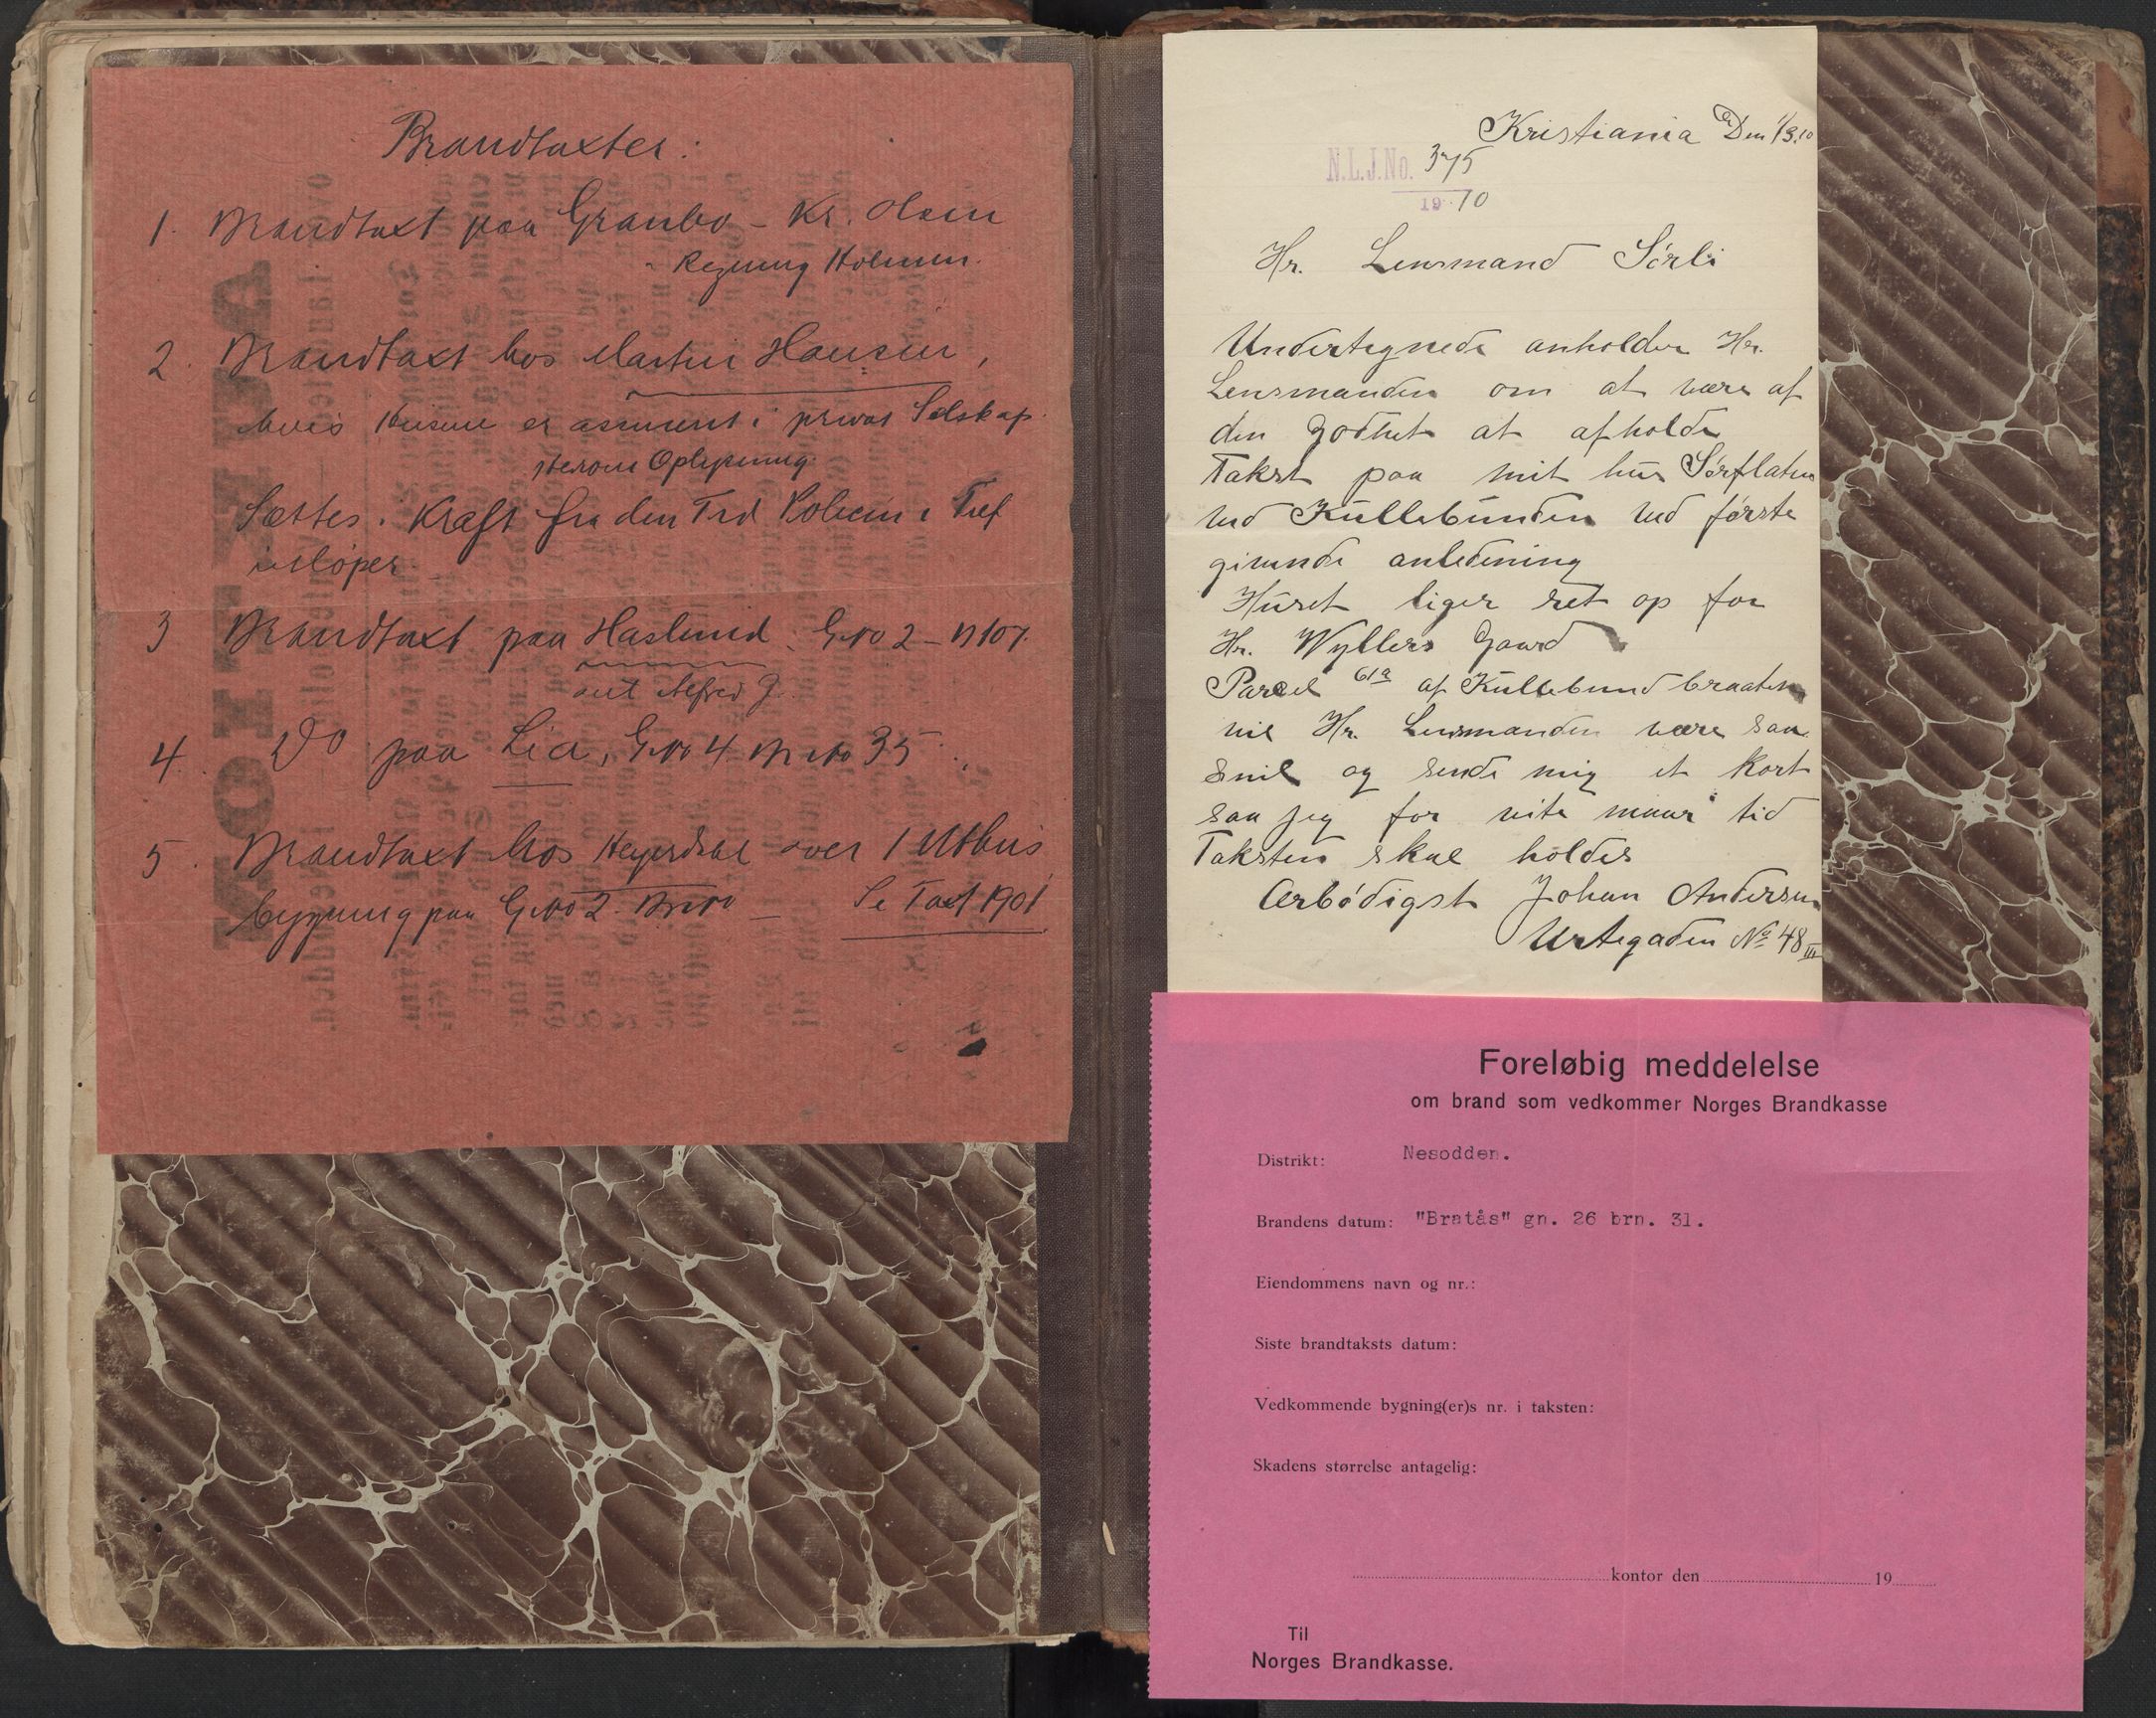 Brandtaxter:
1. Brandtaxt paa Granbo - Kr. Olsen
Regning Holmen.
2. Brandtaxt hos Martin Hansen,
hvis Husene er assureret i privat Selskap
herom Oplysning
Sættes i Kraft fra den Tid Policen i
utløper
3 Brandtaxt paa Haslund. G.No 2 - B 107.
Alfred J.
4. Do paa Lia, G.No 4 B No 35
5. Brandtaxt hos Heyerdal over 1 Uthus
bygning paa G.No 2. Br.No — Se Taxt 1901
Kristiania Den 1/3.10
N.L.J.No. 375
1910
Hr. Lensmand Sörli
Undertegnede anholder Hr.
Lensmanden om at være af
den godhet at afholde
Takst paa mit hus Sörflaten
ved Küllebunden ved förste
givende anledening
Huset liger ret op for
Hr. Wyllers Gaard
Parcel 61a af Küllebundbraaten
vil Hr. Lensmanden være saa
snil og sende mig et kort
saa jeg for vite naar tid
Taksten skal holdes
Ærbödigst Johan Andersen
Urtegaden No 48 III
Foreløbig meddelelse
om brand som vedkommer Norges Brandkasse
Distrikt: Nesodden.
Brandens datum: "Bratås" gn. 26 brn. 31.
Eiendommens navn og nr.:
Siste brandtaksts datum:
Vedkommende bygning(er)s nr. i taksten:
Skadens størrelse antagelig:
kontor den 19
Til
Norges Brandkasse.